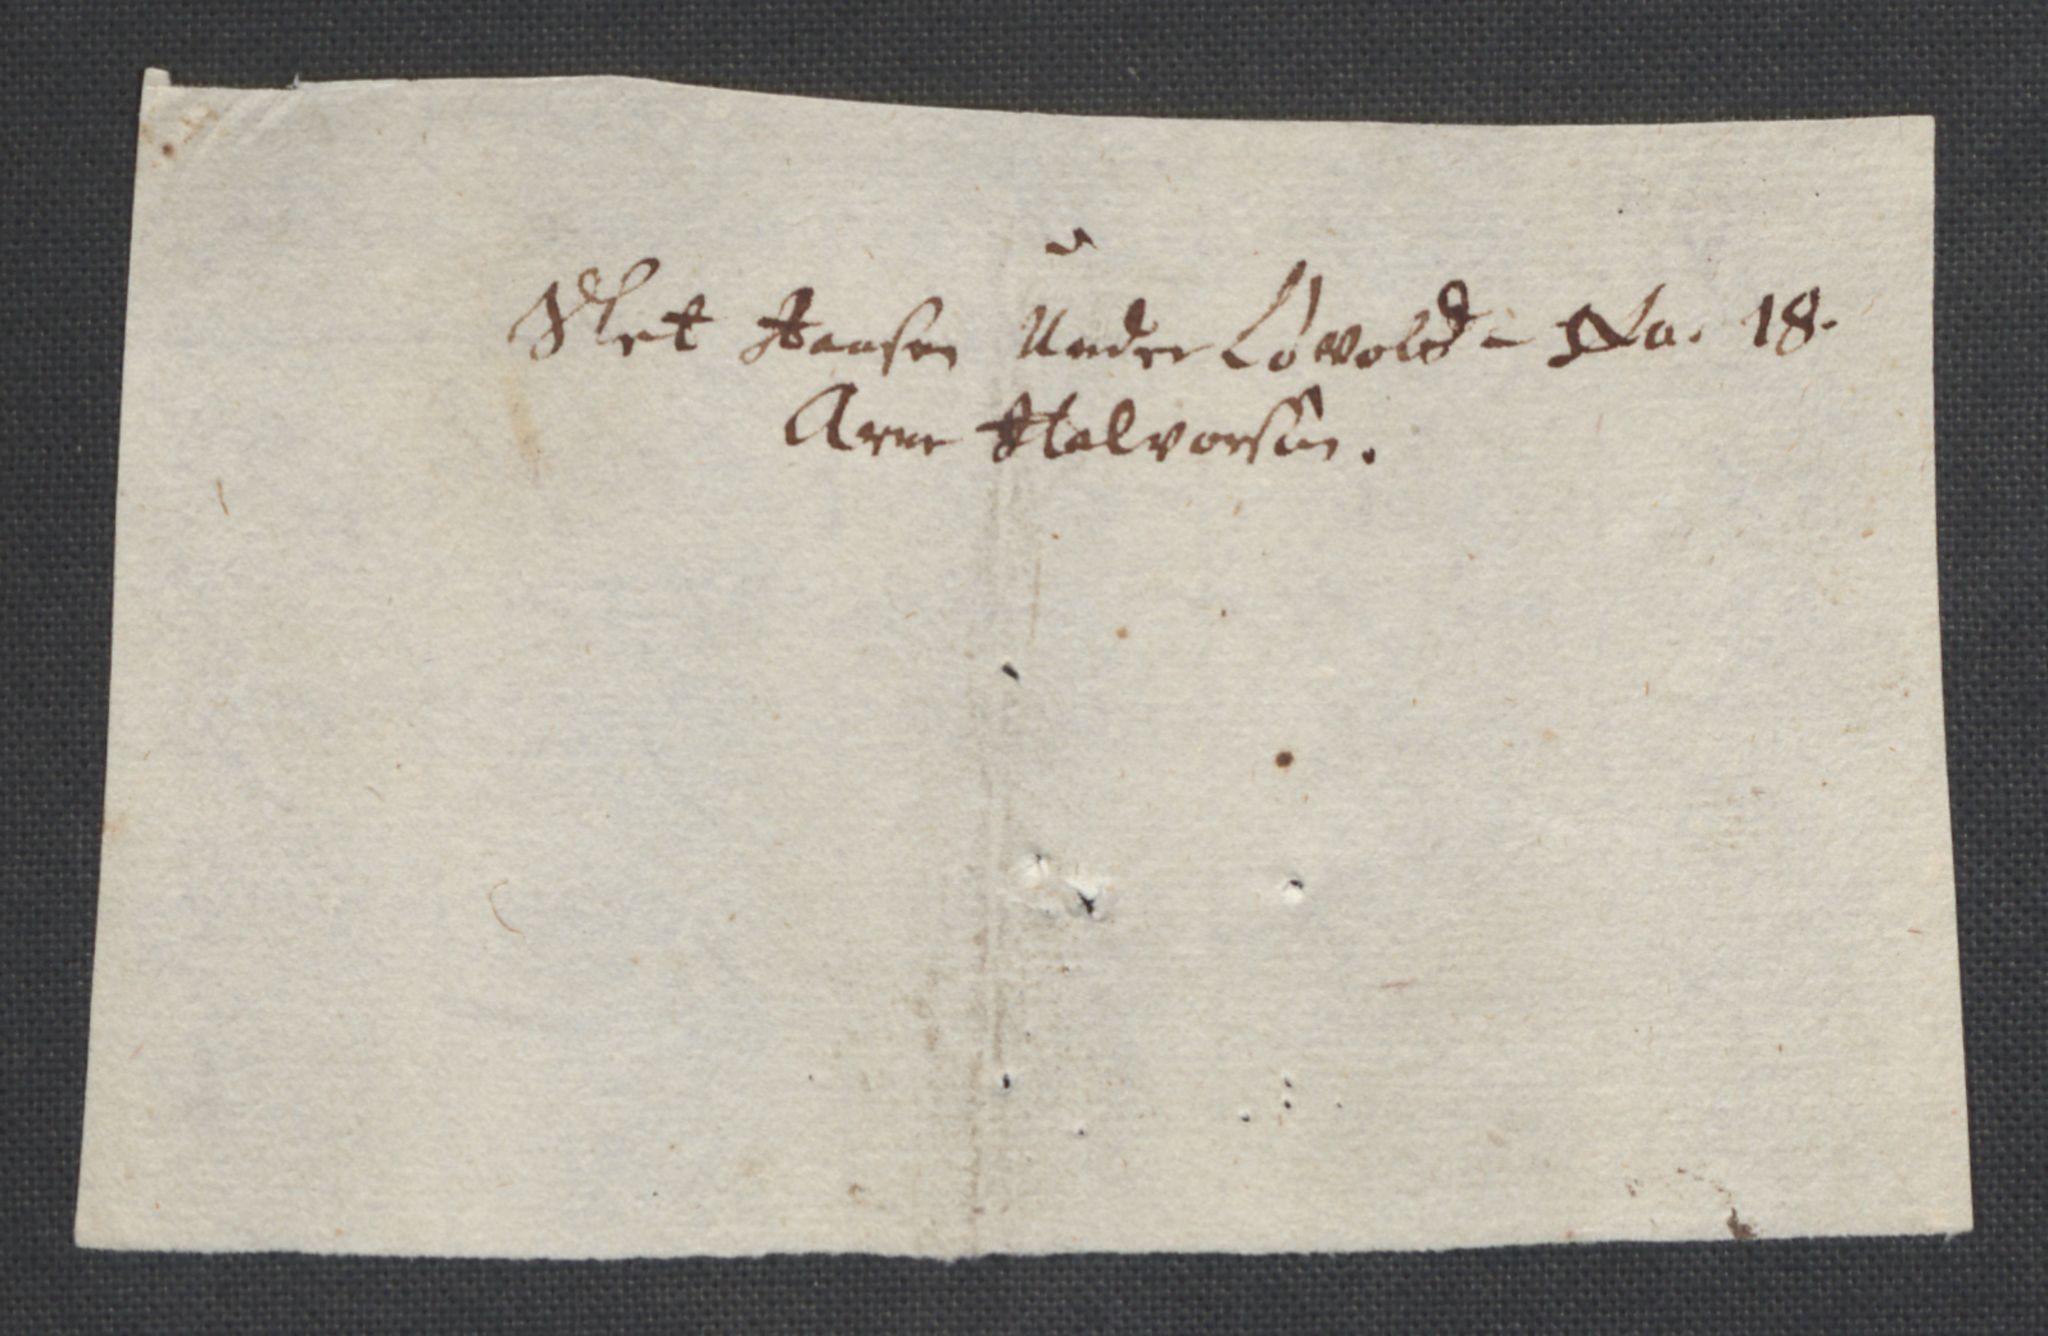 Slet Hansen Under Løvold - No. 18.
Arne Halvorsen.